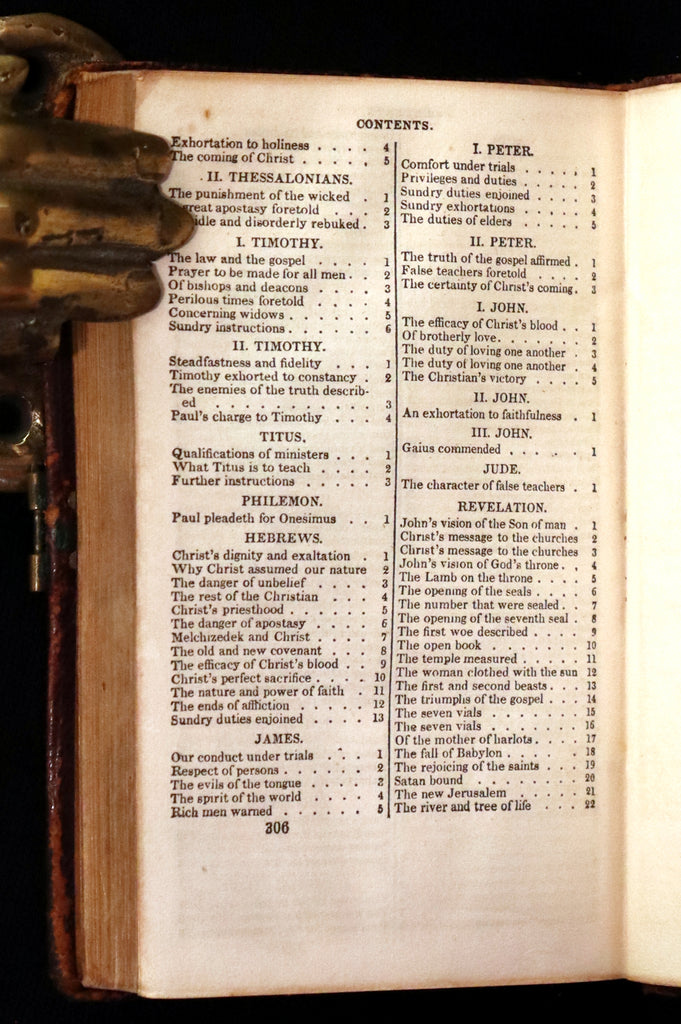 CONTENTS.
Exhortation to holiness . . . . 4
The coming of Christ . . . . . 5
II. THESSALONIANS.
The punishment of the wicked . 1
great apostasy foretold . . . 2
idle and disorderly rebuked . 3
I. TIMOTHY.
The law and the gospel . . . . 1
Prayer to be made for all men . . 2
Of bishops and deacons . . . . 3
Perilous times foretold . . . . 4
Concerning widows . . . . . . 5
Sundry instructions . . . . . . 6
II. TIMOTHY.
Steadfastness and fidelity . . . 1
Timothy exhorted to constancy . 2
The enemies of the truth describ-
ed . . . . . . . . . . . 3
Paul's charge to Timothy . . . 4
TITUS.
Qualifications of ministers . . . 1
What Titus is to teach . . . . 2
Further instructions . . . . . 3
PHILEMON.
Paul pleadeth for Onesimus . . 1
HEBREWS.
Christ's dignity and exaltation . 1
Why Christ assumed our nature 2
The danger of unbelief . . . . 3
The rest of the Christian . . . 4
Christ's priesthood . . . . . . 5
The danger of apostasy . . . . 6
Melchizedek and Christ . . . . 7
The old and new covenant . . . 8
The efficacy of Christ's blood . . 9
Christ's perfect sacrifice . . . . 10
The nature and power of faith . 11
The ends of affliction . . . . . 12
Sundry duties enjoined . . . . 13
JAMES.
Our conduct under trials . . . 1
Respect of persons . . . . . . 2
The evils of the tongue . . . . 3
The spirit of the world . . . . 4
Rich men warned . . . . . . 5
306
I. PETER.
Comfort under trials . . . . . 1
Privileges and duties . . . . . 2
Sundry duties enjoined . . . . 3
Sundry exhortations . . . . . 4
The duties of elders . . . . . 5
II. PETER.
The truth of the gospel affirmed . 1
False teachers foretold . . . . 2
The certainty of Christ's coming . 3
I. JOHN.
The efficacy of Christ's blood . . 1
Of brotherly love . . . . . . . 2
The duty of loving one another . 3
The duty of loving one another . 4
The Christian's victory . . . . 5
II. JOHN.
An exhortation to faithfulness . 1
III. JOHN.
Gaius commended . . . . . . 1
JUDE.
The character of false teachers . 1
REVELATION.
John's vision of the Son of man . 1
Christ's message to the churches 2
Christ's message to the churches 3
John's vision of God's throne . . 4
The Lamb on the throne . . . . 5
The opening of the seals . . . . 6
The number that were sealed . . 7
The opening of the seventh seal . 8
The first woe described . . . . 9
The open book . . . . . . . 10
The temple measured . . . . . 11
The woman clothed with the sun 12
The first and second beasts . . . 13
The triumphs of the gospel . . . 14
The seven vials . . . . . . . 15
The seven vials . . . . . . . 16
Of the mother of harlots . . . . 17
The fall of Babylon . . . . . 18
The rejoicing of the saints . . . 19
Satan bound . . . . . . . . 20
The new Jerusalem . . . . . 21
The river and tree of life . . . 22